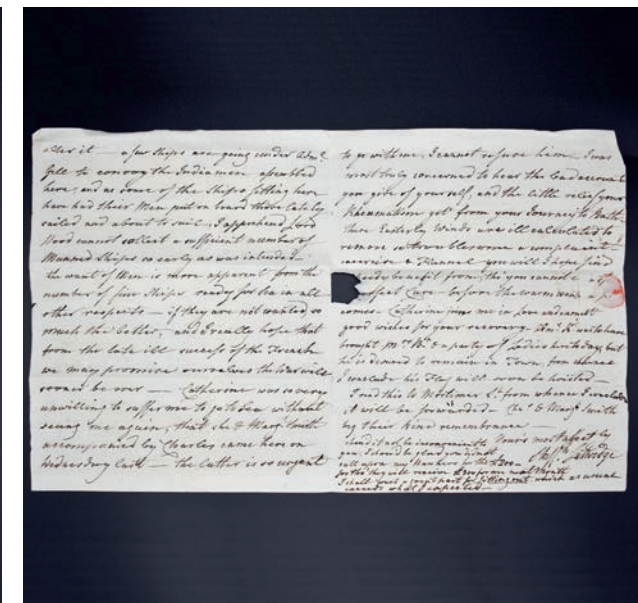 alter it — a few Ships are going under Adm.l
Gell to convoy the Indiamen assembled
here, and as some of the Ships fitting here
have had their Men put on board those lately
sailed and about to sail, I apprehend Lord
Hood cannot collect a sufficient number of
Manned Ships so early as was intended —
the want of Men is more apparent from the
number of fine Ships ready for Sea in all
other respects — if they are not wanted, so
much the better, and I really hope that
from the late ill success of the French
we may promise ourselves the War will
sooner be over — Catherine was so very
unwilling to suffer me to go to Sea without
seeing me again, that she & Marg.t Smith
accompanied by Charles came here on
Wednesday last — the latter is so urgent
to go with me, I cannot refuse him — I was
most truly concerned to hear the bad account
you give of yourself, and the little relief your
Rheumatism got from your Journey to Bath.
these Easterly Winds are ill calculated to
remove so troublesome a complaint
exercise & Flannel you will I hope find
benefit from, tho you cannot
perfect Cure before the warm
comes — Catherine joins me in Love and earnest
good wishes for your recovery.
brought M.rs & a party of Ladies here to day, but
he is desired to remain in Town, from whence
I conclude his Flag will soon be hoisted —
I send this to Mortimer S.t from whence I conclude
it will be forwarded — Cha.s & Marg.t Smith
beg their kind remembrance —
should it not be inconvenient Yours most affect.ly
to you, I should be glad you did not
call upon my Bankers for the
for tho' they will receive from me next Month
I shall want a great part for fitting out, which as usual
exceeds what I expected —